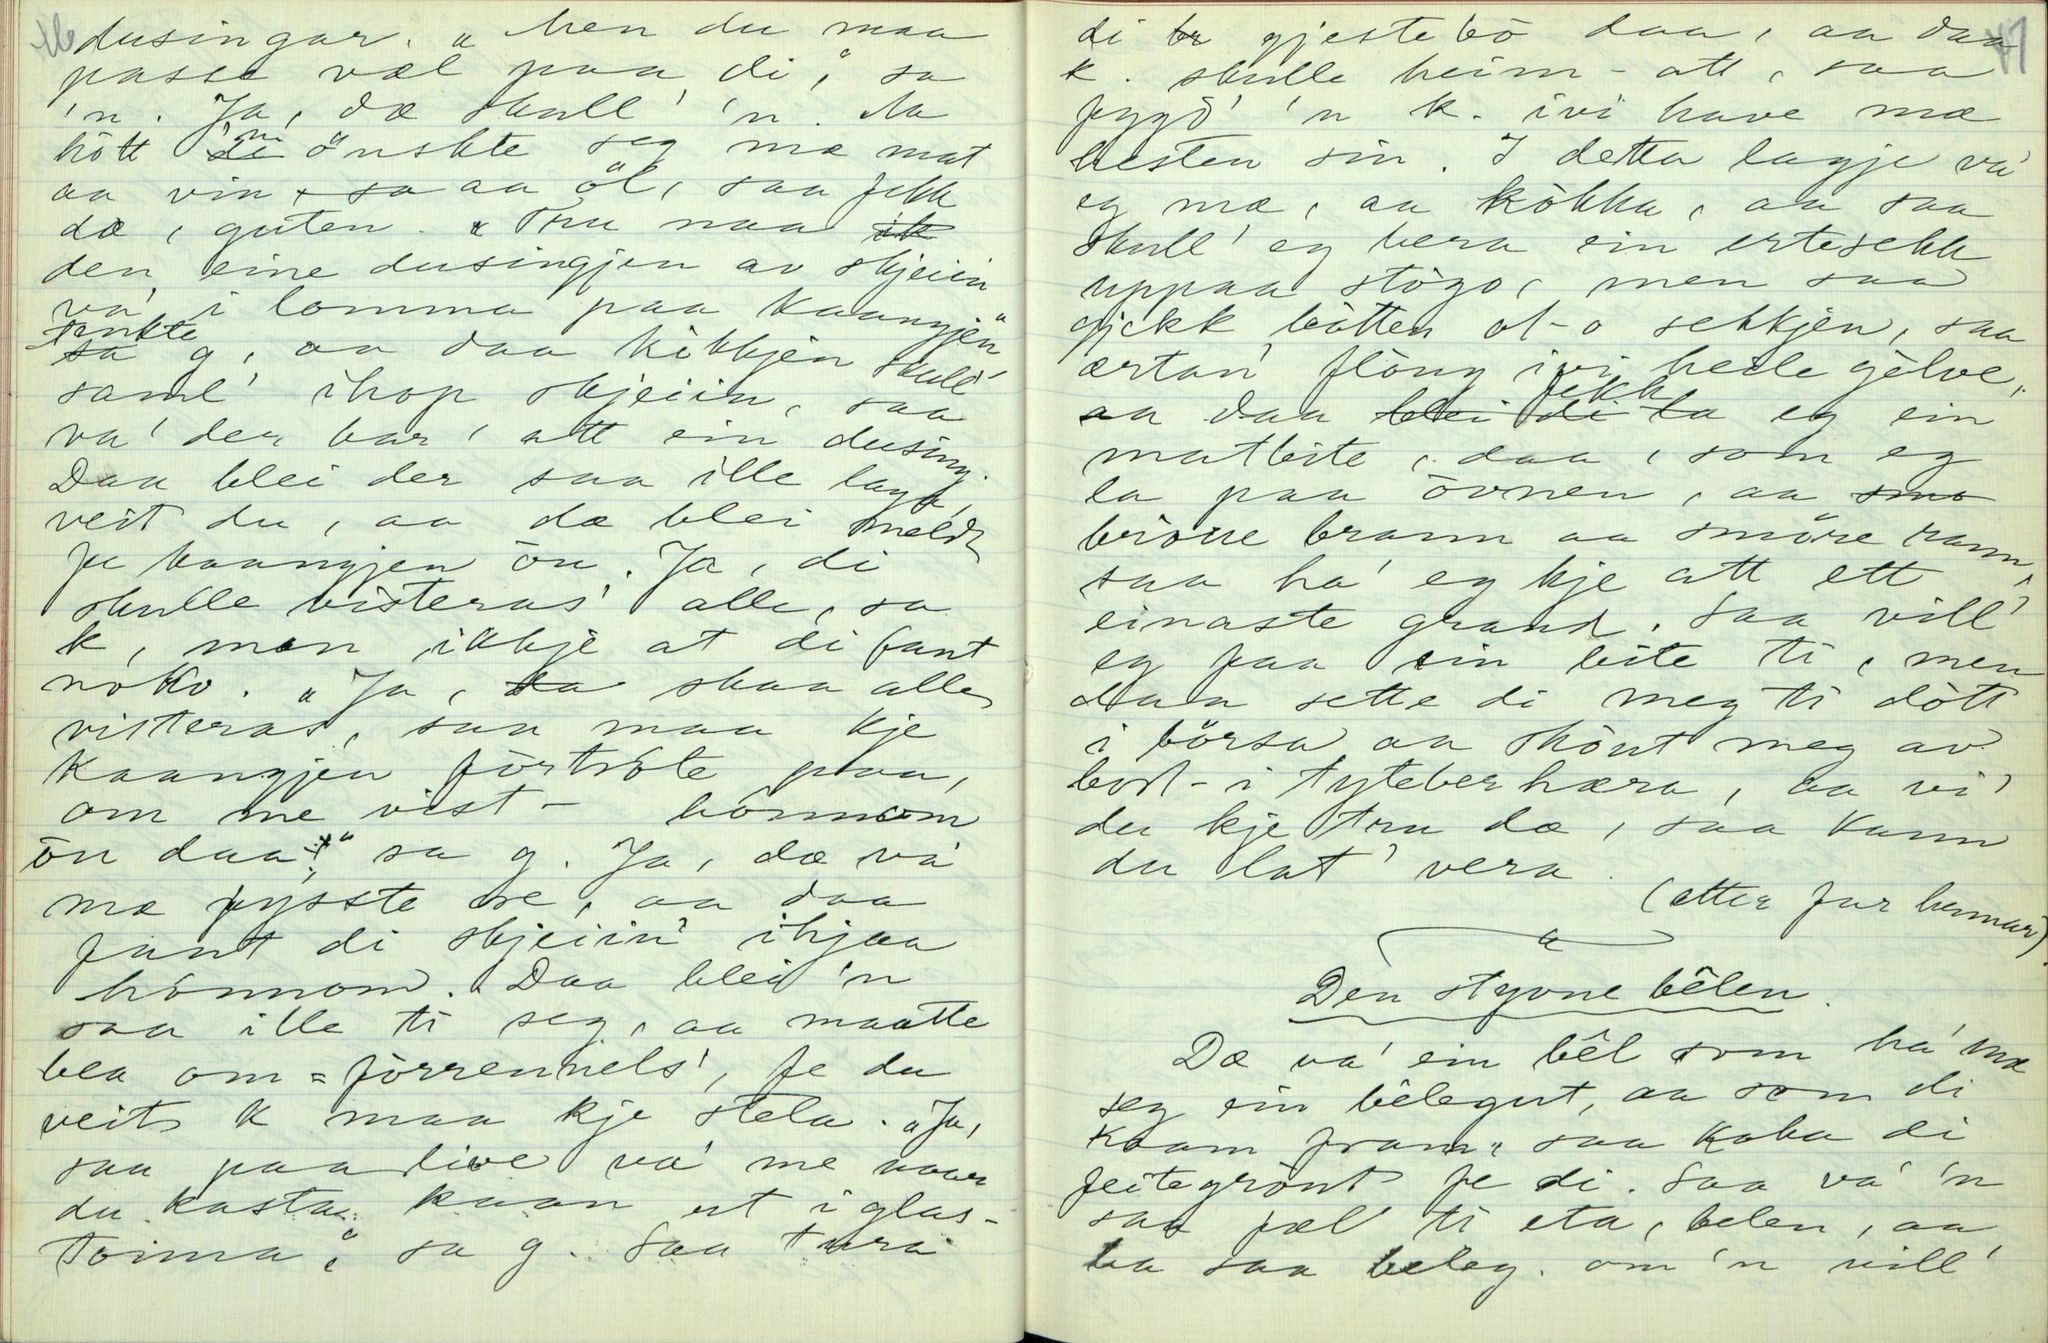 46
dusingar. „Men du maa
passe væl paa di," sa
'n. Ja, dæ skull' 'n. Aa
hôtt 'n önskte seg mæ mat
aa vin, sa aa öl, saa fekk
dæ, guten. „Tru naa ik
den eine dusingjen av skjeiin
va' i lomma paa kaangjen"
tenkte
sa g, aa daa kôkkjen skull'
saml' ihop skjeiin, saa
va' der bar' att ein dusing.
Daa blei der saa ille laga,
veit du, aa dæ blei meldt
fe kaangjen ôn. Ja, di
skulle visteras' alle, sa
k, men ikkje at di fant
noko. „Ja, sa skaa alle
visteras, saa maa kje
kaangjen fôrtrôte paa,
om me vist- hônnom
ôn daa!" sa g. Ja, dæ va'
mæ fysste re, aa daa
fant di skjeiin' ihjaa
hônnom. Daa blei 'n
saa ille ti seg, aa maatte
bea om fôrrennels', fe du
veit k maa kje stela. „Ja,
saa paa live va' me naar
du kasta kaan ut i glas-
toima," sa g. Saa tura
47
di br gjestebô daa, aa daa
k. skulle heim-att, saa
fygd' 'n k. ivi have mæ
hesten sin. I detta lagje va'
eg mæ, aa kôkka, aa saa
skull' eg bera ein ertesekk
uppaa stôgo, men saa
gjekk bôtten ot-o sekkjen, saa
ærtan' flöng ivi heile gôlve,
aa daa blei di la fekk eg ein
matbite, daa, som eg
la paa ôvnen, aa smo
brôue brann aa smöre rann,
saa ha' eg kje att ett
einaste grand. Saa vill'
eg faa ein bite ti, men
daa sette di meg ti dôtt
i börsa aa skôut meg av
bort-i tyteberhæra, aa vi'
du kje tru dæ, saa kann
du lat' vera.
(etter far hennar).
Den styvne bêlen.
Dæ va' ein bêl som ha' mæ
seg ein bêlegut, aa som di
kaam fram, saa koka di
feitegrôut fe di. Saa va' 'n
saa fæl ti eta, belen, aa
ba saa beleg. om 'n vill'